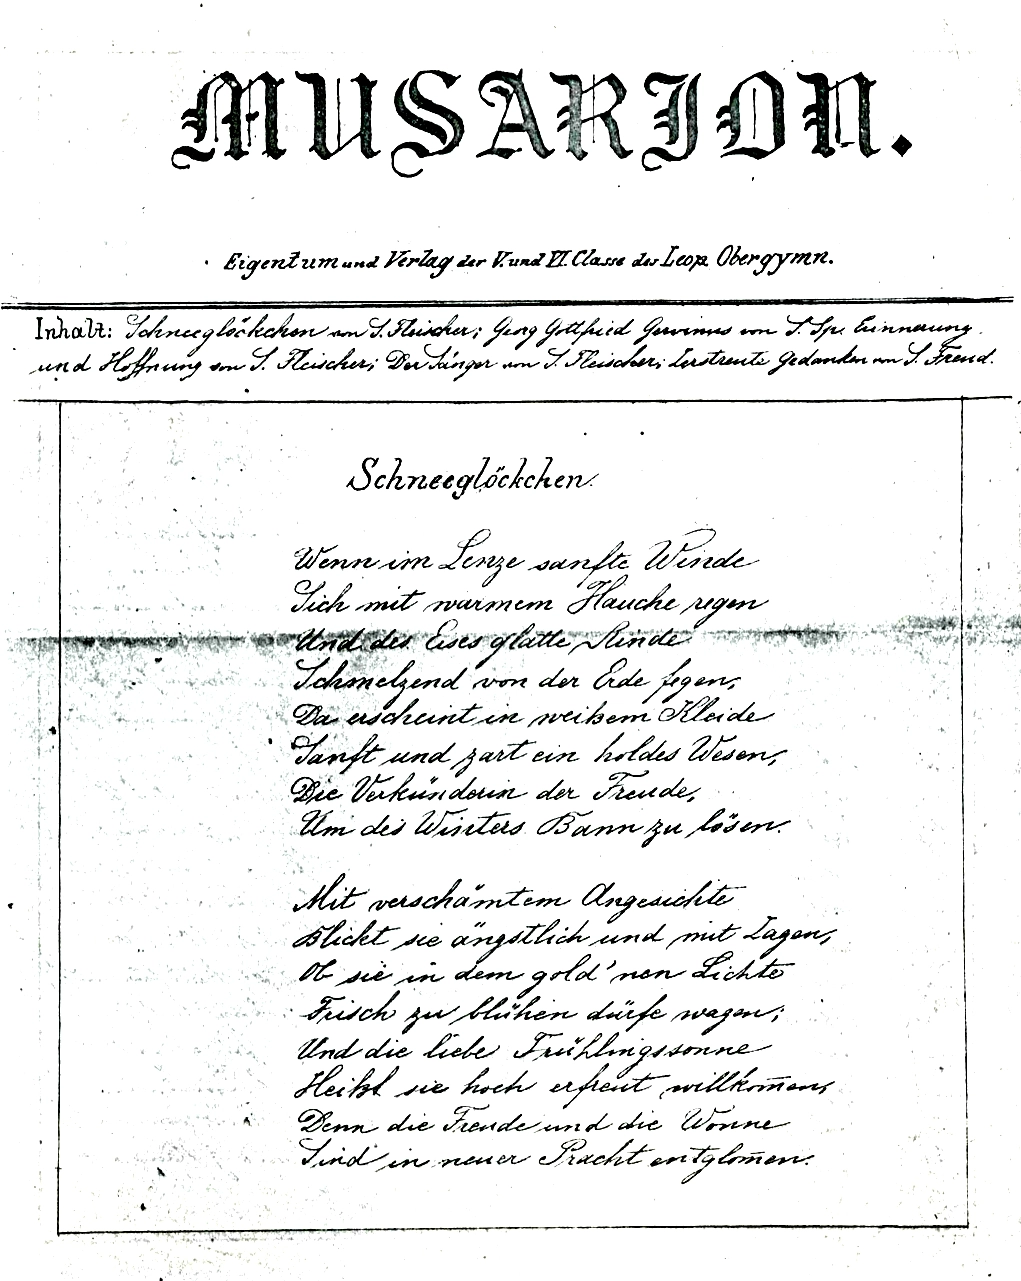 MUSARION.
Eigentum und Verlag der V. und VI. Classe des Leop. Obergymn.
Inhalt: Schneeglöckchen von S. Fleischer; Georg Gottfried Gervinus von S. Sp. Erinnerung
und Hoffnung von S. Fleischer; Der Sänger von S. Fleischer; Zerstreute Gedanken von S. Freud.
Schneeglöckchen.
Wenn im Lenze sanfte Winde
Sich mit warmem Hauche regen
Und des Eises glatte Rinde
Schmelzend von der Erde fegen,
Da erscheint in weißem Kleide
Sanft und zart ein holdes Wesen,
Die Verkünderin der Freude,
Um des Winters Bann zu lösen.
Mit verschämtem Angesichte
Blickt sie ängstlich und mit Zagen,
Ob sie in dem gold'nen Lichte
Frisch zu blühen dürfe wagen;
Und die liebe Frühlingssonne
Heißt sie hoch erfreut willkom̅en,
Denn die Freude und die Wonne
Sind in neuer Pracht entglom̅en.